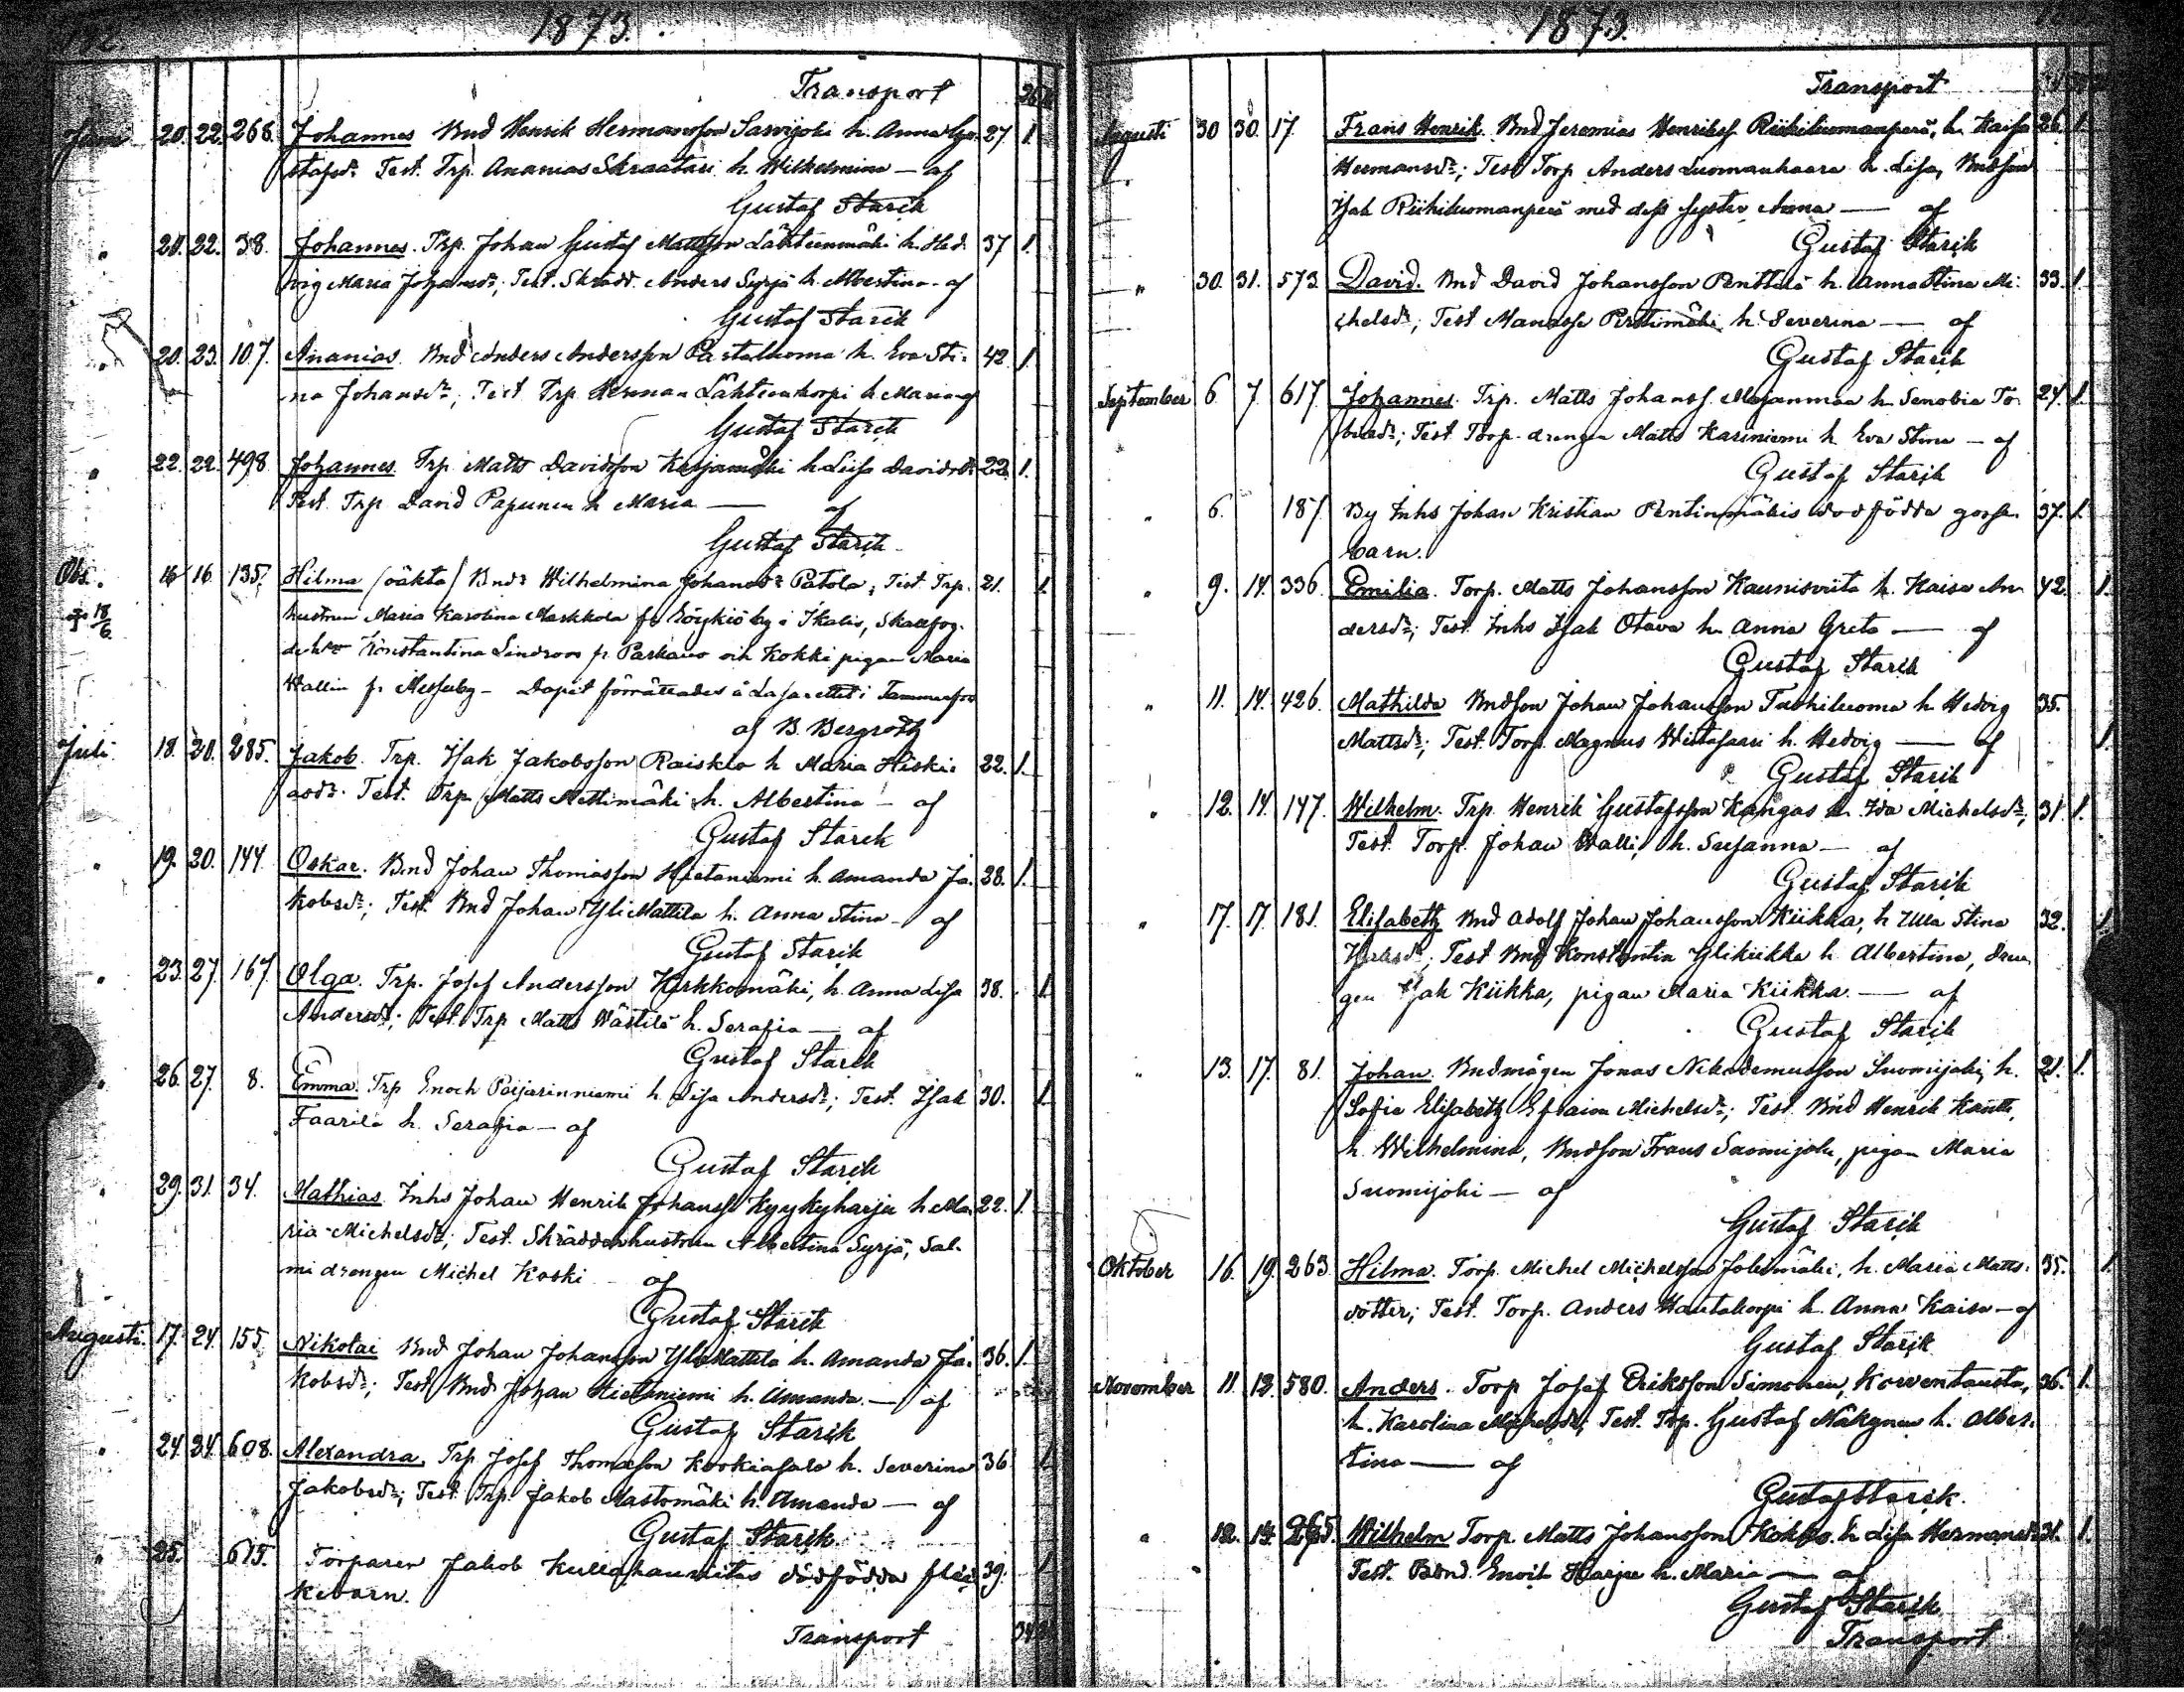 1873.
Transport
Juni 20. 22. 268. Johannes Bnd Henrik Hermansson Sarvijoki h. Anna Gu- 27 1.
stafsdr Test. Trp. Ananias Skraatari h. Wilhelmina — af
Gustaf Starck
" 20. 22. 38. Johannes. Trp. Johan Gustaf Mattsson Lähteenmäki h. Hed- 37 1.
vig Maria Johansdr; Test. Skrädd. Anders Syrjä h. Albertina - af
Gustaf Starck
" 20. 23. 107. Ananias. Bnd Anders Andersson h. Eva Sti- 42 1.
na Johansdr; Test Trp Herman Lähteenkorpi h Maria af
Gustaf Starck
" 22. 22. 498 Johannes. Trp. Matts Davidsson h Lisa Davidsdr 22 1.
Test. Trp. David Papunen h Maria — af
Gustaf Starck
Obs. 16 16. 135. Hilma /oäkta/ Bndr Wilhelmina Johansdr Patola; Test. Trp. 21. 1.
+ 18/6 hustrun Maria Karolina Markkola fr Röykiö by i Ikalis, Skallfog-
Konstantina Lindroos fr. Parkano och Kokki pigan Maria
Wallin fr Messuby - Dopet förrättades å Lasarettet i Tammerfors
af B. Bergroth
Juli 18. 20. 285. Jakob. Trp. Isak Jakobsson Raiskio h Maria Hiski- 22. 1.
asdr. Test. Trp Matts Mettimäki h. Albertina — af
Gustaf Starck
" 19. 20. 144. Oskar. Bnd Johan Thomasson Hietaniemi h. Amanda Ja- 28. 1.
kobsdr; Test. Bnd Johan YliMattila h. Anna Stina — af
Gustaf Starck
" 23. 27. 167. Olga. Trp. Josef Andersson Kirkkomäki, h. Anna Lisa 38. 1
Andersdr; Test. Trp Matts Wästilä h. Serafia — af
Gustaf Starck
" 26. 27. 8. Emma. Trp Enoch Poijarinniemi h Lisa Andersdr; Test. Isak 30. 1
Faarila h. Serafia — af
Gustaf Starck
" 29. 31. 34. Mathias Inhs Johan Henrik Johanss Kyykyharju h Ma- 22. 1.
ria Michelsdr; Test. Skräddarhustrun Albertina Syrjä, Sal-
mi drengen Michel Koski — af
Gustaf Starck
Augusti. 17. 24. 155. Nikolai Bnd Johan Johansson YliMattila h. Amanda Ja- 36. 1.
kobsdr; Test Bnd Johan Hietaniemi h. Amanda. — af
Gustaf Starck
" 24. 24. 608. Alexandra. Trp Josef Thomasson h. Severina 36 1
Jakobsdr; Test. Trp. Jakob Mastomäki h. Amanda — af
Gustaf Starck
" 25. 615. Torparen Jakob dödfödda flic- 39. 1
kebarn.
Transport
1873.
Transport
Augusti 30 30. 17. Frans Henrik. Bnd Jeremias Henrikss Riihiluomanperä, h. Kaisa 26. 1.
Hermansdr; Test Torp Anders Luomanhaara h. Lisa, Bndson
Isak Riihiluomanperä med dess syster Anna — af
Gustaf Starck
" 30. 31. 573 David. Bnd David Johansson Penttilä h. Anna Stina Mi- 33. 1.
chelsdr; Test Manasse Pirttimäki h. Severina — af
Gustaf Starck
September 6 7 617. Johannes. Trp. Matts Johanss. Majanmaa h Senobia To- 24. 1.
biasdr; Test. Torp. drengen Matts Kariniemi h Eva Stina — af
Gustaf Starck
" 6. 187. By Inhs Johan Kristian Pentinmäkis dödfödda gosse- 37. 1.
barn.
" 9. 14. 336. Emilia. Torp. Matts Johansson Kaunisviita h. Kaisa An- 42. 1.
dersdr; Test. Inhs Isak Otava h. Anna Greta — af
Gustaf Starck
" 11. 14. 426. Mathilda Bndson Johan Johansson h Hedvig 35.
Mattsdr; Test. Torp. Magnus h. Hedvig — af 1.
Gustaf Starck
" 12. 14. 147. Wilhelm. Trp Henrik Gustafsson Kangas h. Ida Michelsdr; 31. 1.
Test. Torp. Johan Walli, h. Susanna — af
Gustaf Starck
" 17. 17. 181. Elisabeth Bnd Adolf Johan Johansson Kiikka, h Ulla Stina 32. 1
Test Bnd Konstantin Ylikiikka h Albertina, dren-
gen Isak Kiikka, pigan Maria Kiikka. — af
Gustaf Starck
" 13. 17. 81. Johan. Bndmågen Jonas Nikodemusson Suomijoki, h. 21. 1.
Sofia Elisabeth Efraim Michelsdr; Test. Bnd Henrik
h. Wilhelmina, Bndson Frans Suomijoki, pigan Maria
Suomijoki — af
Gustaf Starck
Oktober 16. 19. 263 Hilma. Torp. Michel Michelsson h. Maria Matts- 35. 1.
dotter; Test. Torp. Anders Hautakorpi h. Anna Kaisa — af
Gustaf Starck
November 11. 12. 580. Anders. Torp Josef Eriksson Simonen, Korventausta, 36. 1.
h. Karolina Michelsdr; Test. Trp. Gustaf Näkynen h. Alber-
tina — af
Gustaf Starck.
" 12. 14. 265. Wilhelm Torp. Matts Johansson Kokko h Lisa Hermansdr 31. 1.
Test. Bnd. Enoch Harju h. Maria — af
Gustaf Starck
Transport